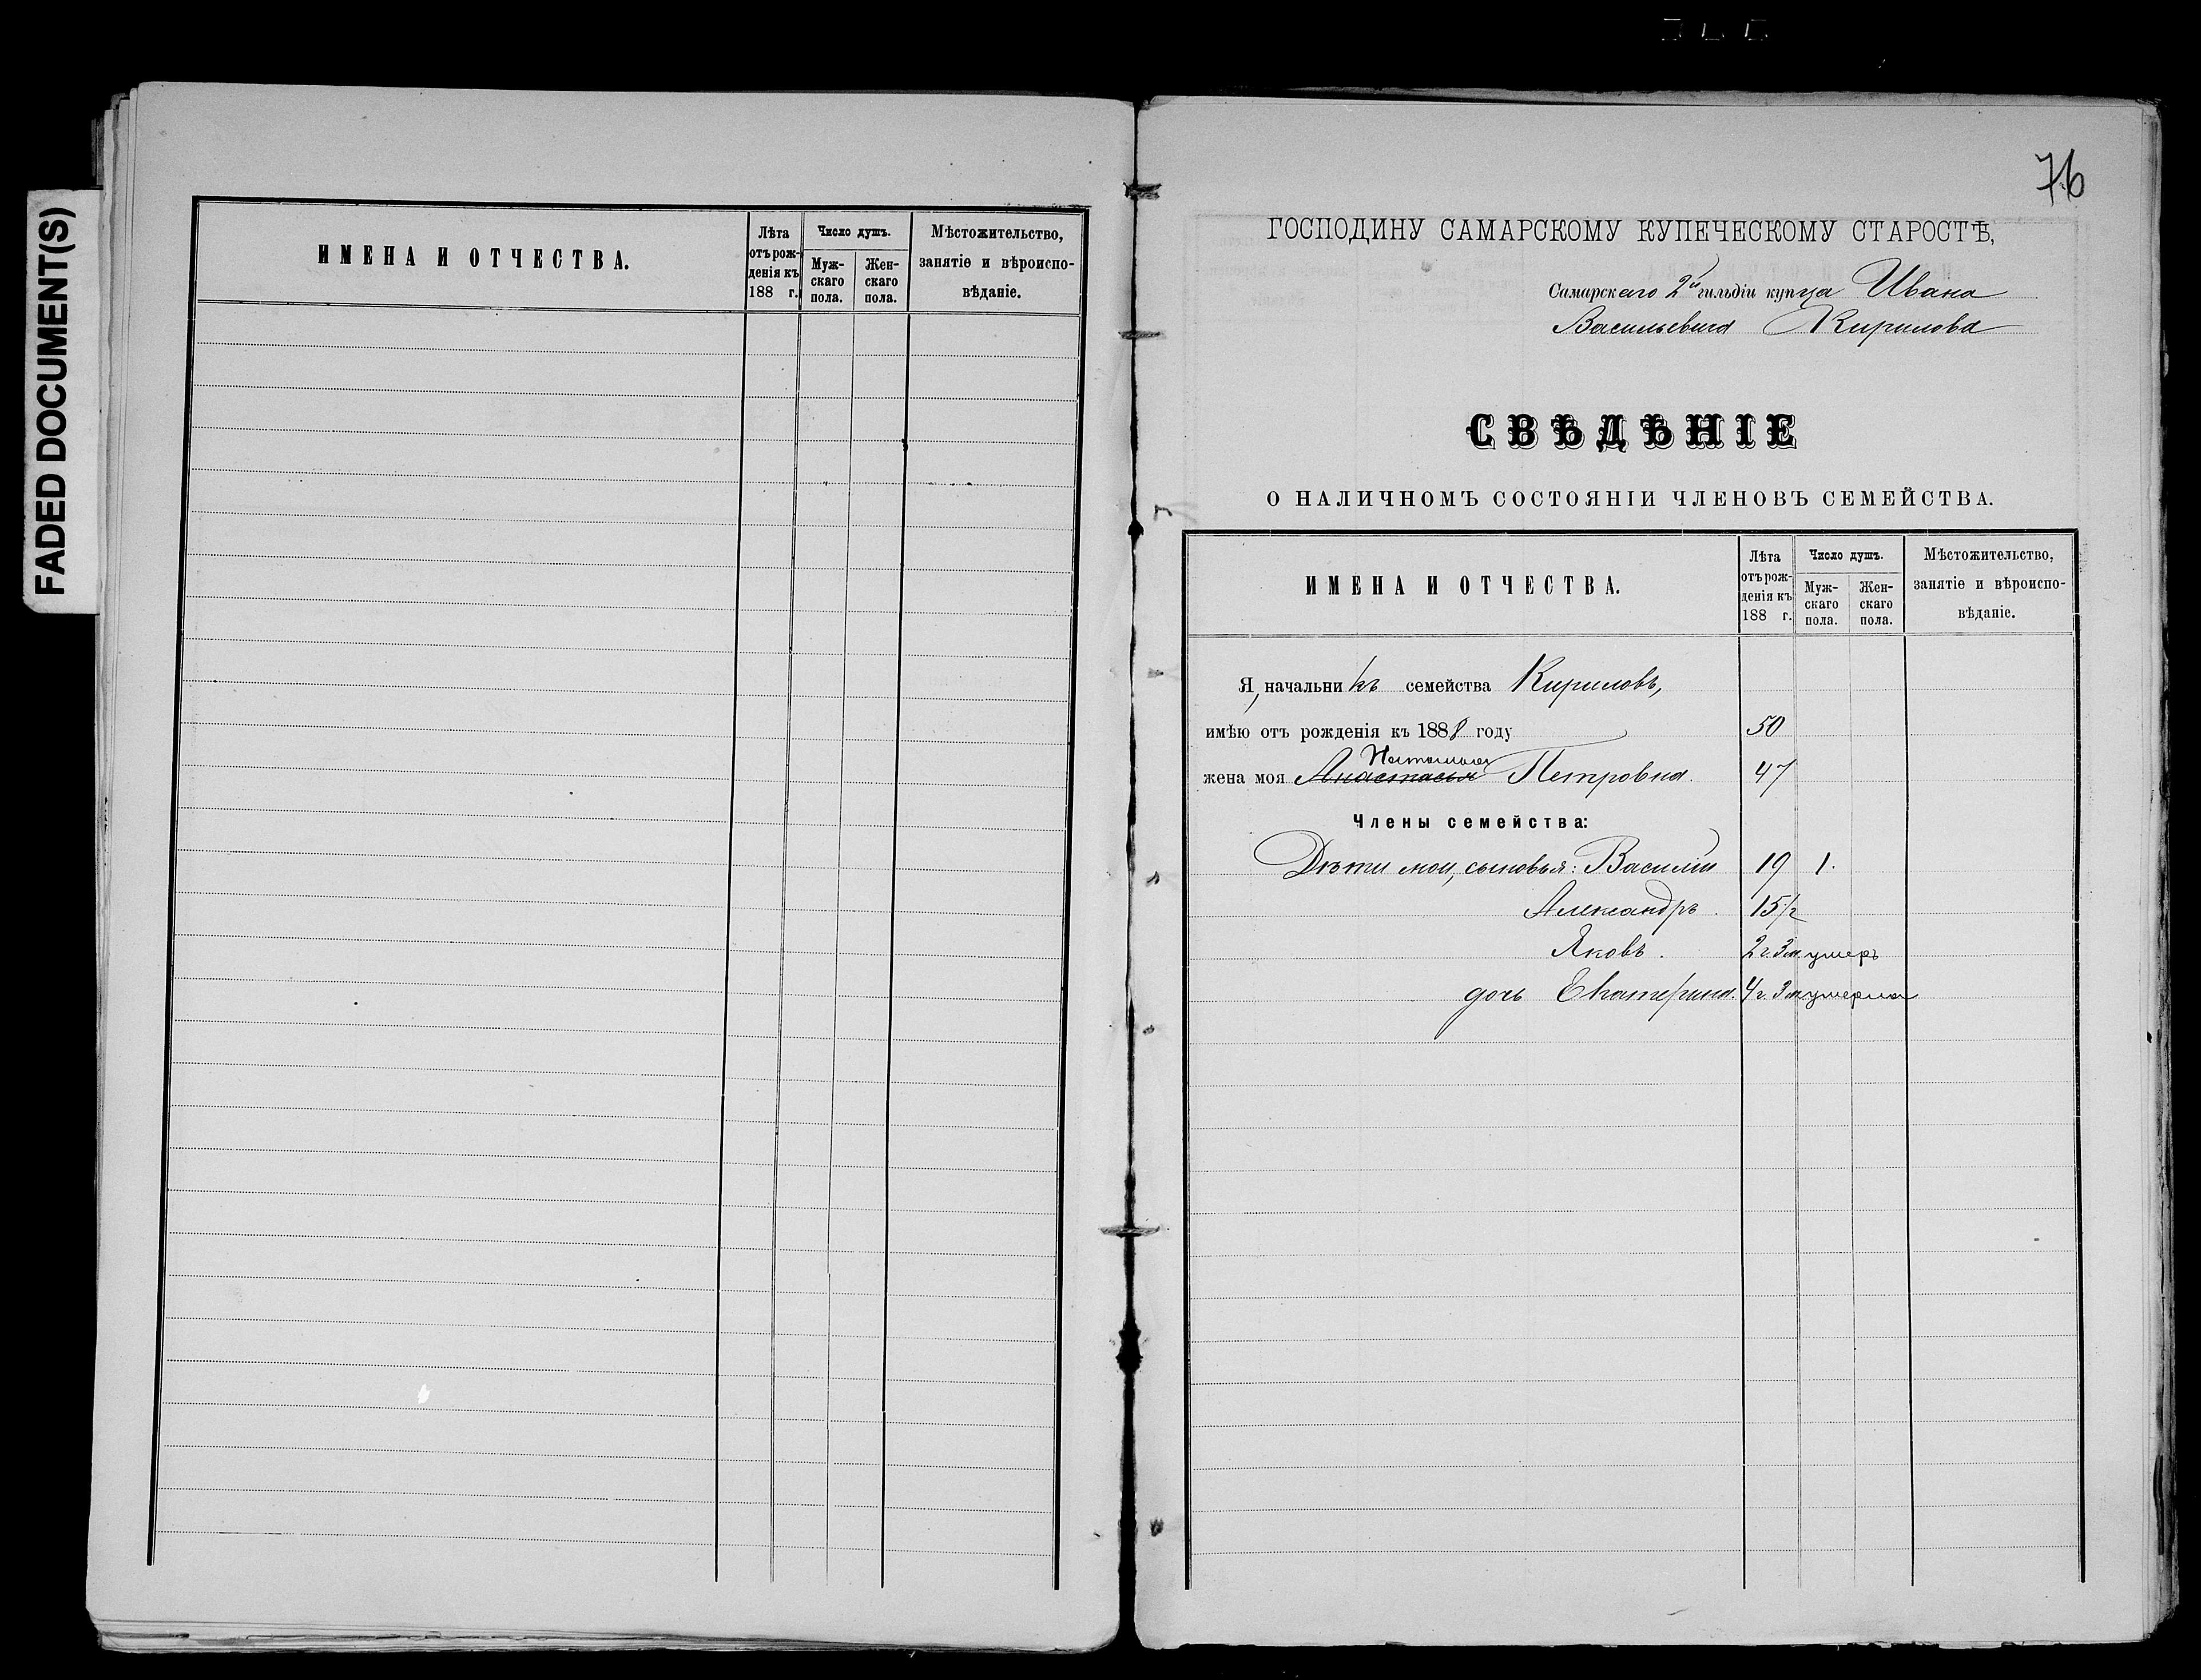 FADED DOCUMENT(S)
ИМЕНА И ОТЧЕСТВА.
Лѣта
отъ рож-
денія къ
188 г.
Число душъ.
Муж-
скаго
пола.
Жен-
скаго
пола.
Мѣстожительство,
занятіе и вѣроиспо-
вѣданіе.
76
ГОСПОДИНУ САМАРСКОМУ КУПЕЧЕСКОМУ СТАРОСТѢ,
Самарскаго 2й гильдіи купца Ивана
Васильевича Кирилова
СВѢДѢНІЕ
О НАЛИЧНОМЪ СОСТОЯНІИ ЧЛЕНОВЪ СЕМЕЙСТВА.
ИМЕНА И ОТЧЕСТВА.
Лѣта
отъ рож-
денія къ
188 г.
Число душъ.
Муж-
скаго
пола.
Жен-
скаго
пола.
Мѣстожительство,
занятіе и вѣроиспо-
вѣданіе.
Я, начальникъ семейства Кириловъ,
имѣю отъ рожденія къ 1888 году 50
Наталья
жена моя Анастасья Петровна. 47
Члены семейства:
Дѣти мои, сыновья: Василій 19 1.
Александръ. 15 1/2
Яковъ. 2 г. 3 м. умеръ
дочь Екатерина. 4 г. 3 м. умерла